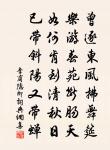 曾逐東風拂舞筵
樂遊春苑斷腸天
如何肯到清秋日
已帶斜陽又帶蟬
李商隱所詠典個柳